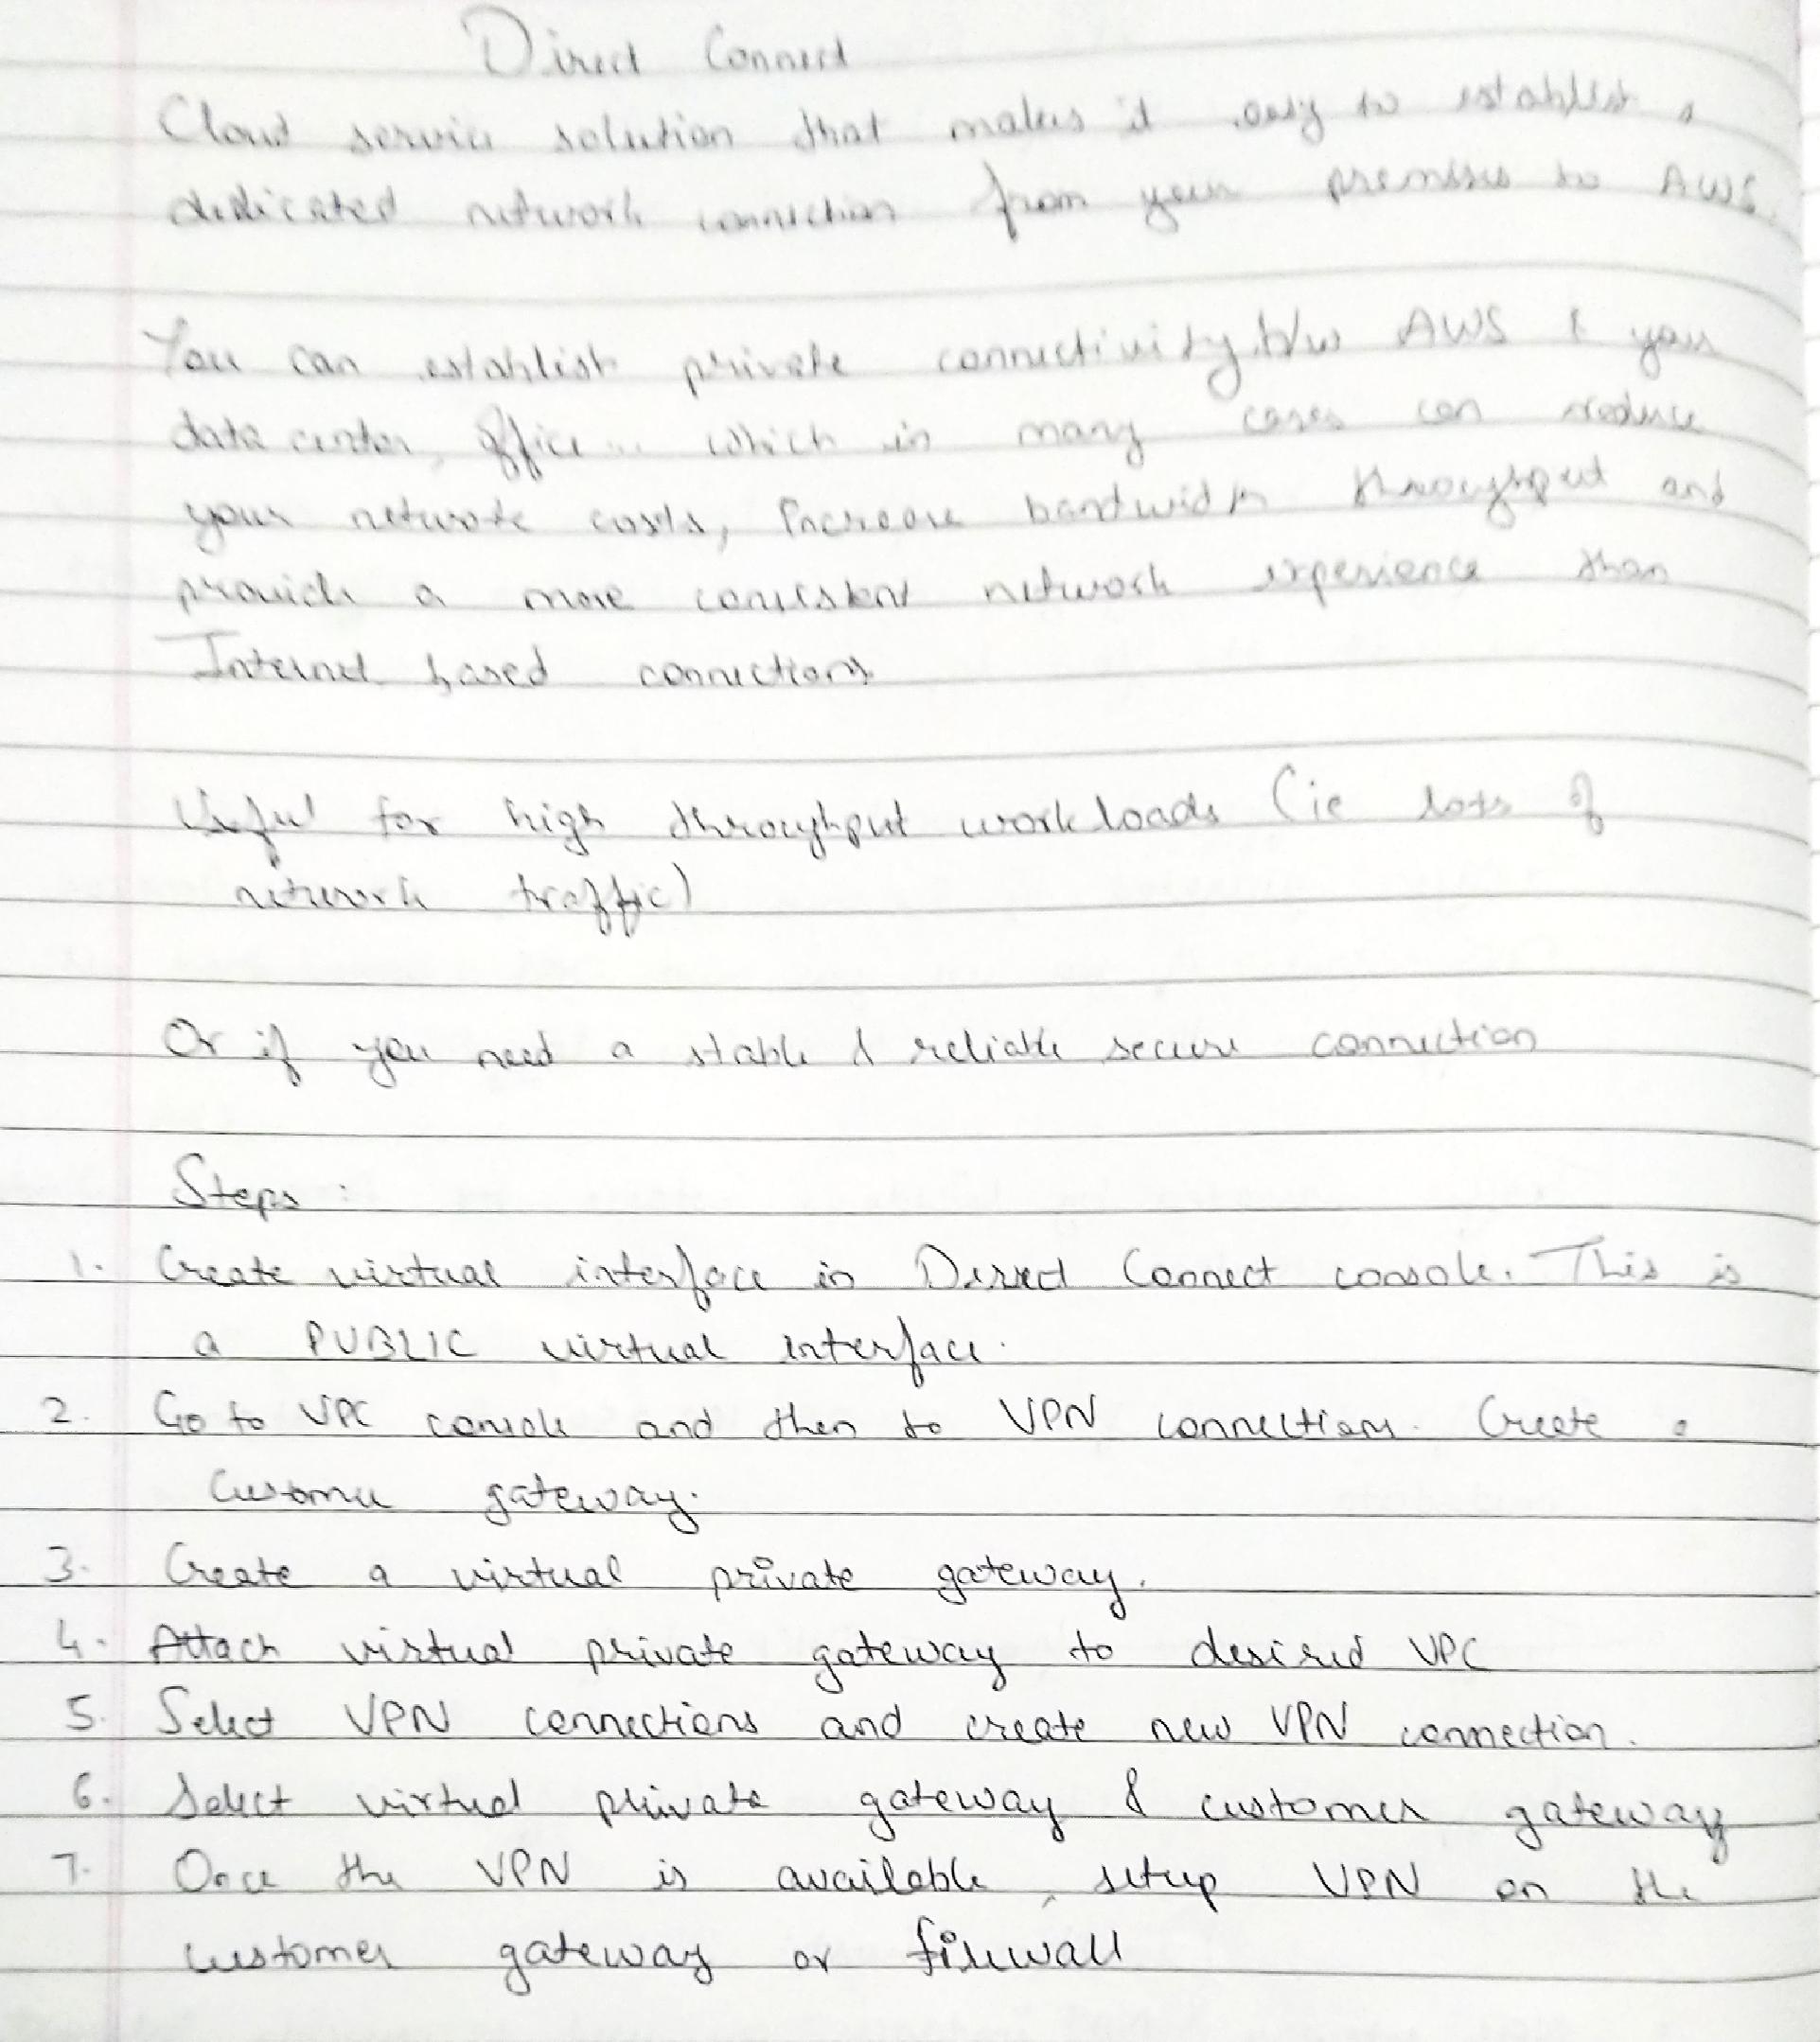 Direct Connect
Cloud service solution that makes it easy to establish a
dedicated network connection from your premises to AWS.
You can establish private connectivity b/w AWS & your
data center, office... which in many cases can reduce
your network costs, increase bandwidth throughput and
provide a more consistent network experience than
Internet based connections
Useful for high throughput workloads (ie lots of
network traffic)
Or if you need a stable & reliable secure connection
Steps :
1. Create virtual interface in Direct Connect console. This is
a PUBLIC virtual interface.
2. Go to VPC console and then to VPN connections. Create a
Customer gateway.
3. Create a virtual private gateway.
4. Attach virtual private gateway to desired VPC
5. Select VPN connections and create new VPN connection.
6. Select virtual private gateway & customer gateway
7. Once the VPN is available, setup VPN on the
customer gateway or firewall